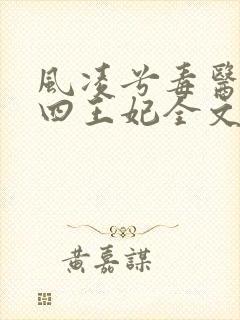 風凌兮毒醫
四王妃全文
黃嘉謀